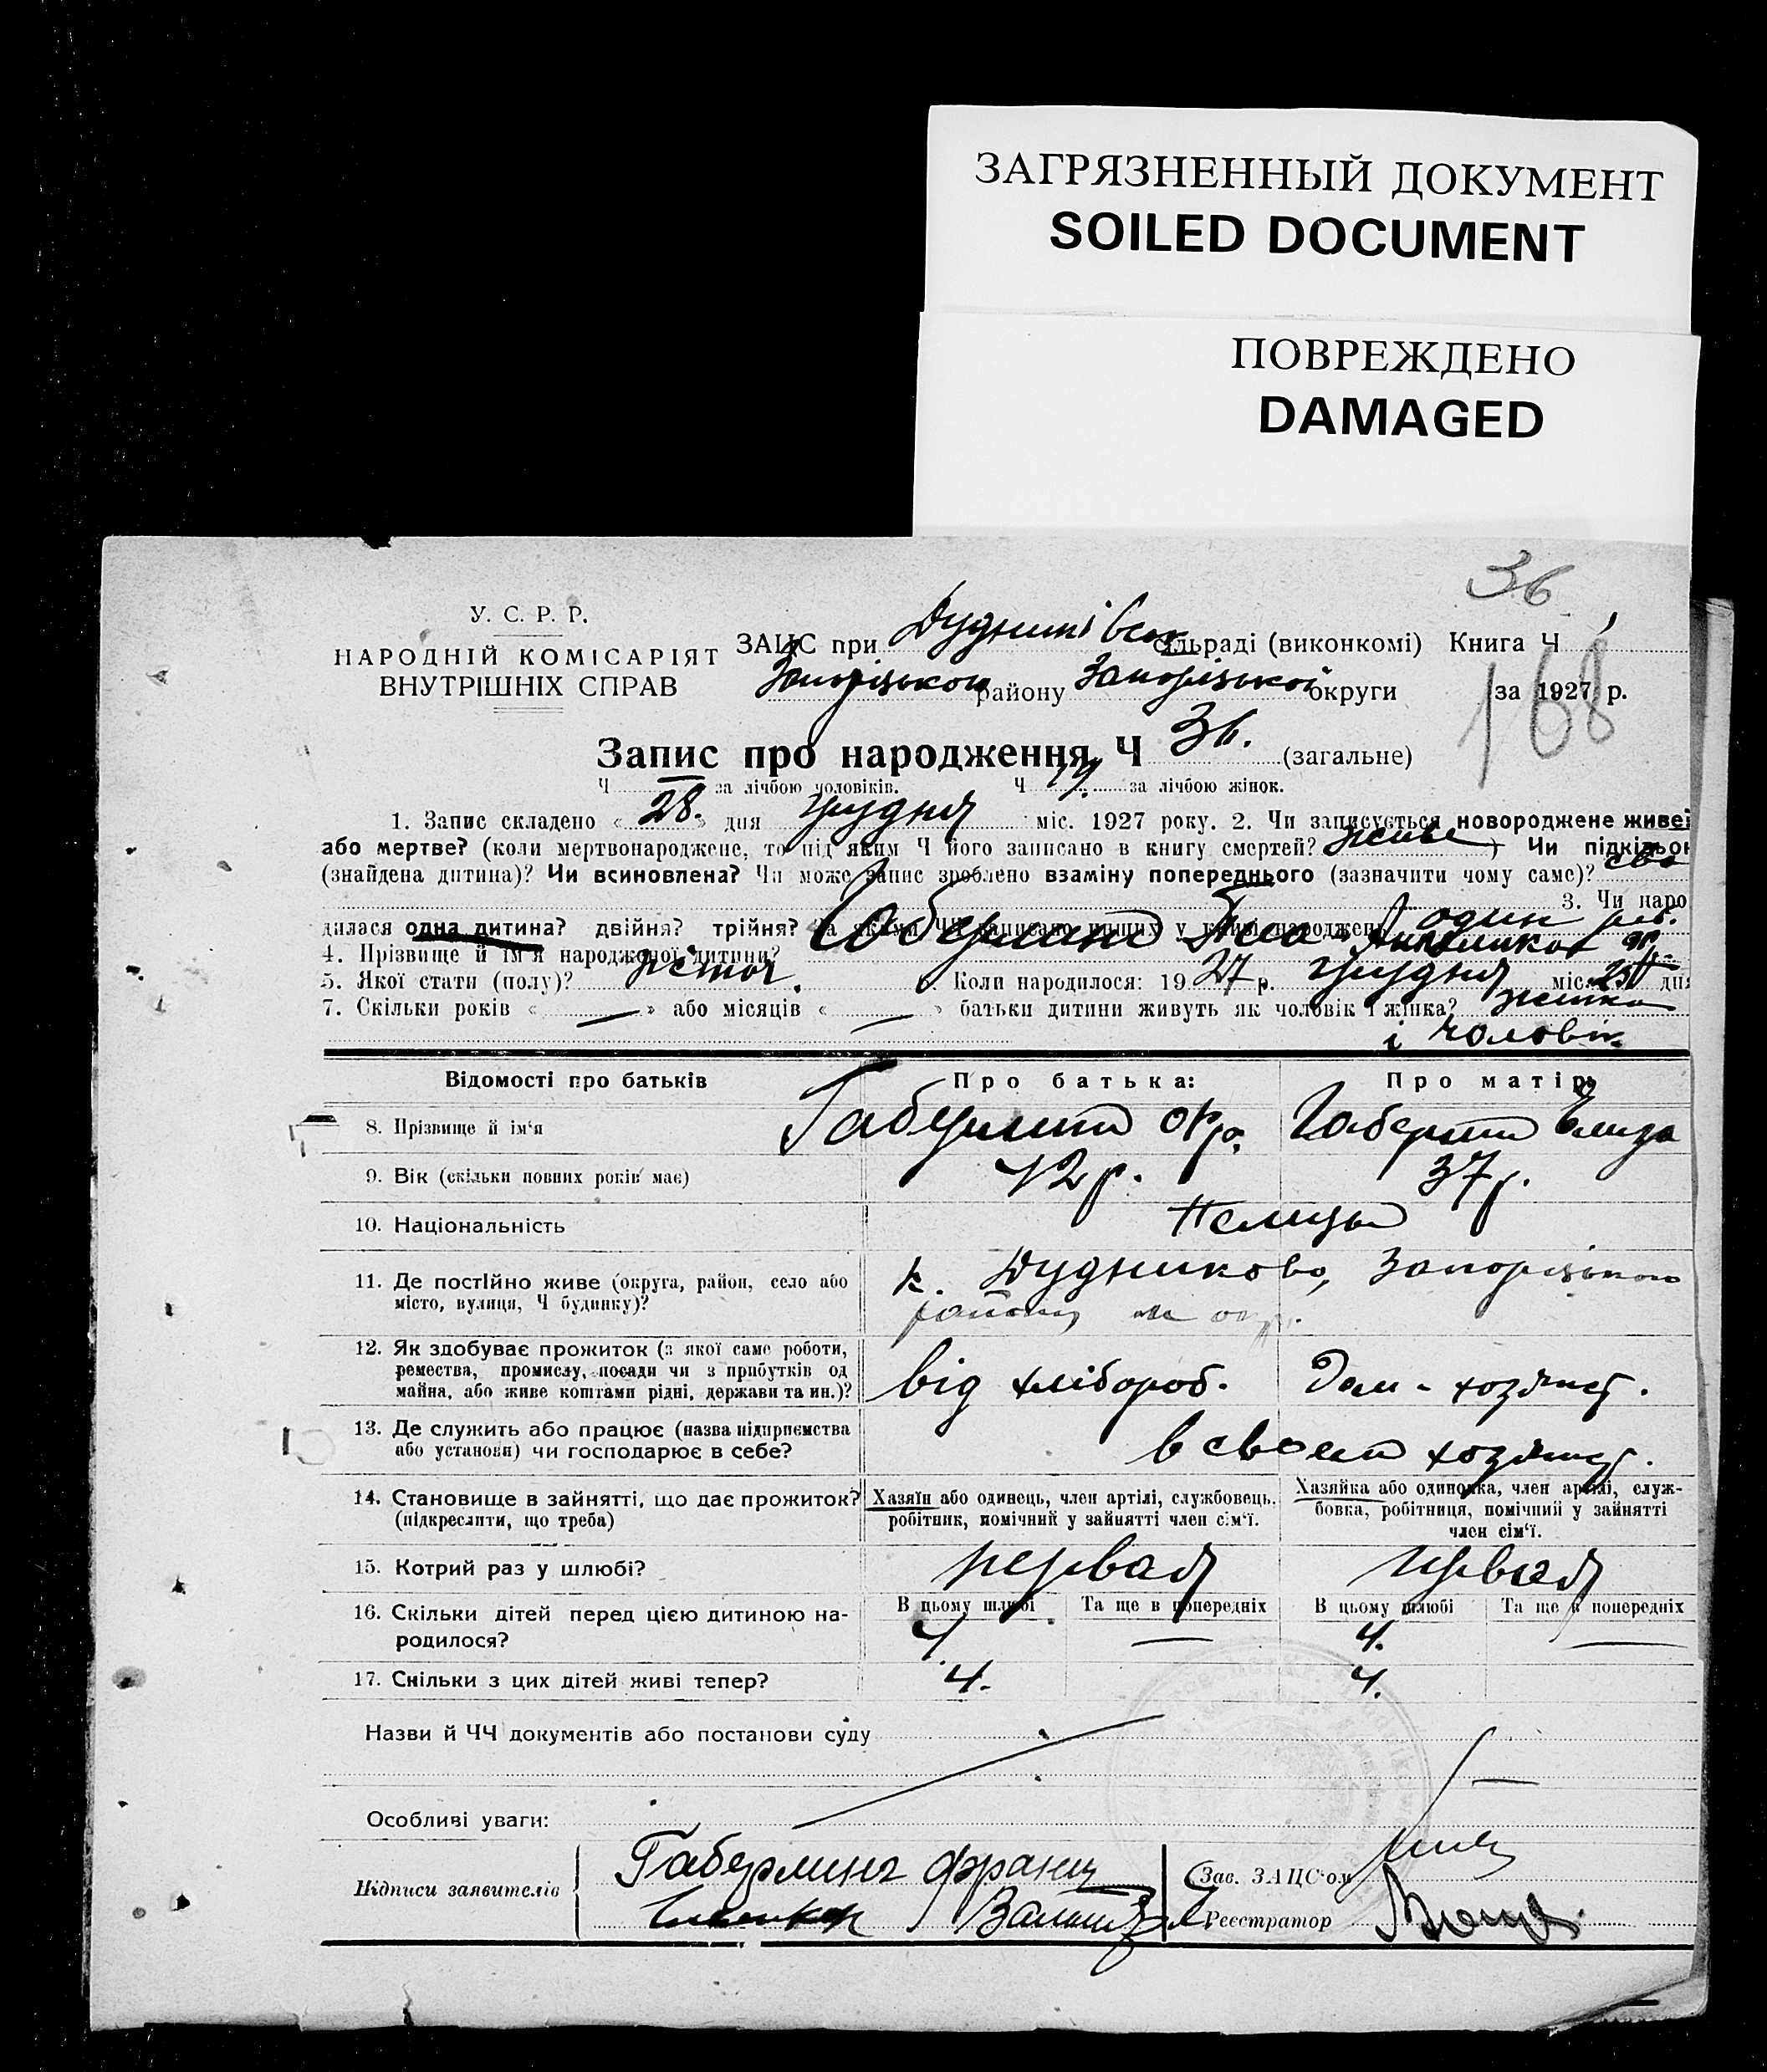 ЗАГРЯЗНЕННЫЙ ДОКУМЕНТ
SOILED DOCUMENT
ПОВРЕЖДЕНО
DAMAGED
36
У. С. Р. Р.
НАРОДНІЙ КОМІСАРІЯТ
ВНУТРІШНІХ СПРАВ
ЗАЦС при сільраді (виконкомі) Книга Ч
Запорізького району Запорізької округи за 1927 р.
168
Запис про народження, Ч 36. (загальне)
Ч — за лічбою чоловіків. Ч 19. за лічбою жінок.
1. Запис складено « 28. » дня грудня міс. 1927 року. 2. Чи записується новороджене живе
або мертве? (коли мертвонароджене, то під яким Ч його записано в книгу смертей? живе ) Чи підкідьок
(знайдена дитина)? Чи всиновлена? Чи може запис зроблено взаміну попереднього (зазначити чому саме)?
3. Чи наро
дилася одна дитина? двійня? трійня? За якими ЧЧ записано инших у книзі народжень один
4. Прізвище й ім'я народженої дитини?
5. Якої стати (полу)? жіноч. Коли народилося: 19 27 р. грудня міс. 25 дня
7. Скільки років « — » або місяців « — » батьки дитини живуть як чоловік і жінка? жінка
і чоловік
Відомості про батьків Про батька: Про матір:
8. Прізвище й ім'я
9. Вік (скільки повних років має) 42 р. 37 р.
10. Національність Немцы
11. Де постійно живе (округа, район, село або
місто, вулиця, Ч будинку)?
к. Дудниково, Запорізького
району
12. Як здобуває прожиток (з якої саме роботи,
ремества, промислу, посади чи з прибутків од
майна, або живе коштами рідні, держави та ин.)?
від хлібороб. Дом-хозяйст.
13. Де служить або працює (назва підприємства
або установи) чи господарює в себе?
в своем хозяйст.
14. Становище в зайнятті, що дає прожиток?
(підкреслити, що треба)
Хазяїн або одинець, член артілі, службовець.
робітник, помічний у зайнятті член сім'ї.
Хазяйка або одиночка, член артілі, служ-
бовка, робітниця, помічний у зайнятті
член сім'ї.
15. Котрий раз у шлюбі? первая первая
16. Скільки дітей перед цією дитиною на-
родилося?
В цьому шлюбі Та ще в попередніх В цьому шлюбі Та ще в попередніх
4. — 4. —
17. Скільки з цих дітей живі тепер? 4. 4.
Назви й ЧЧ документів або постанови суду
Особливі уваги:
Підписи заявителів
Габерлинг Франц
Зав. ЗАЦС'ом
Реєстратор